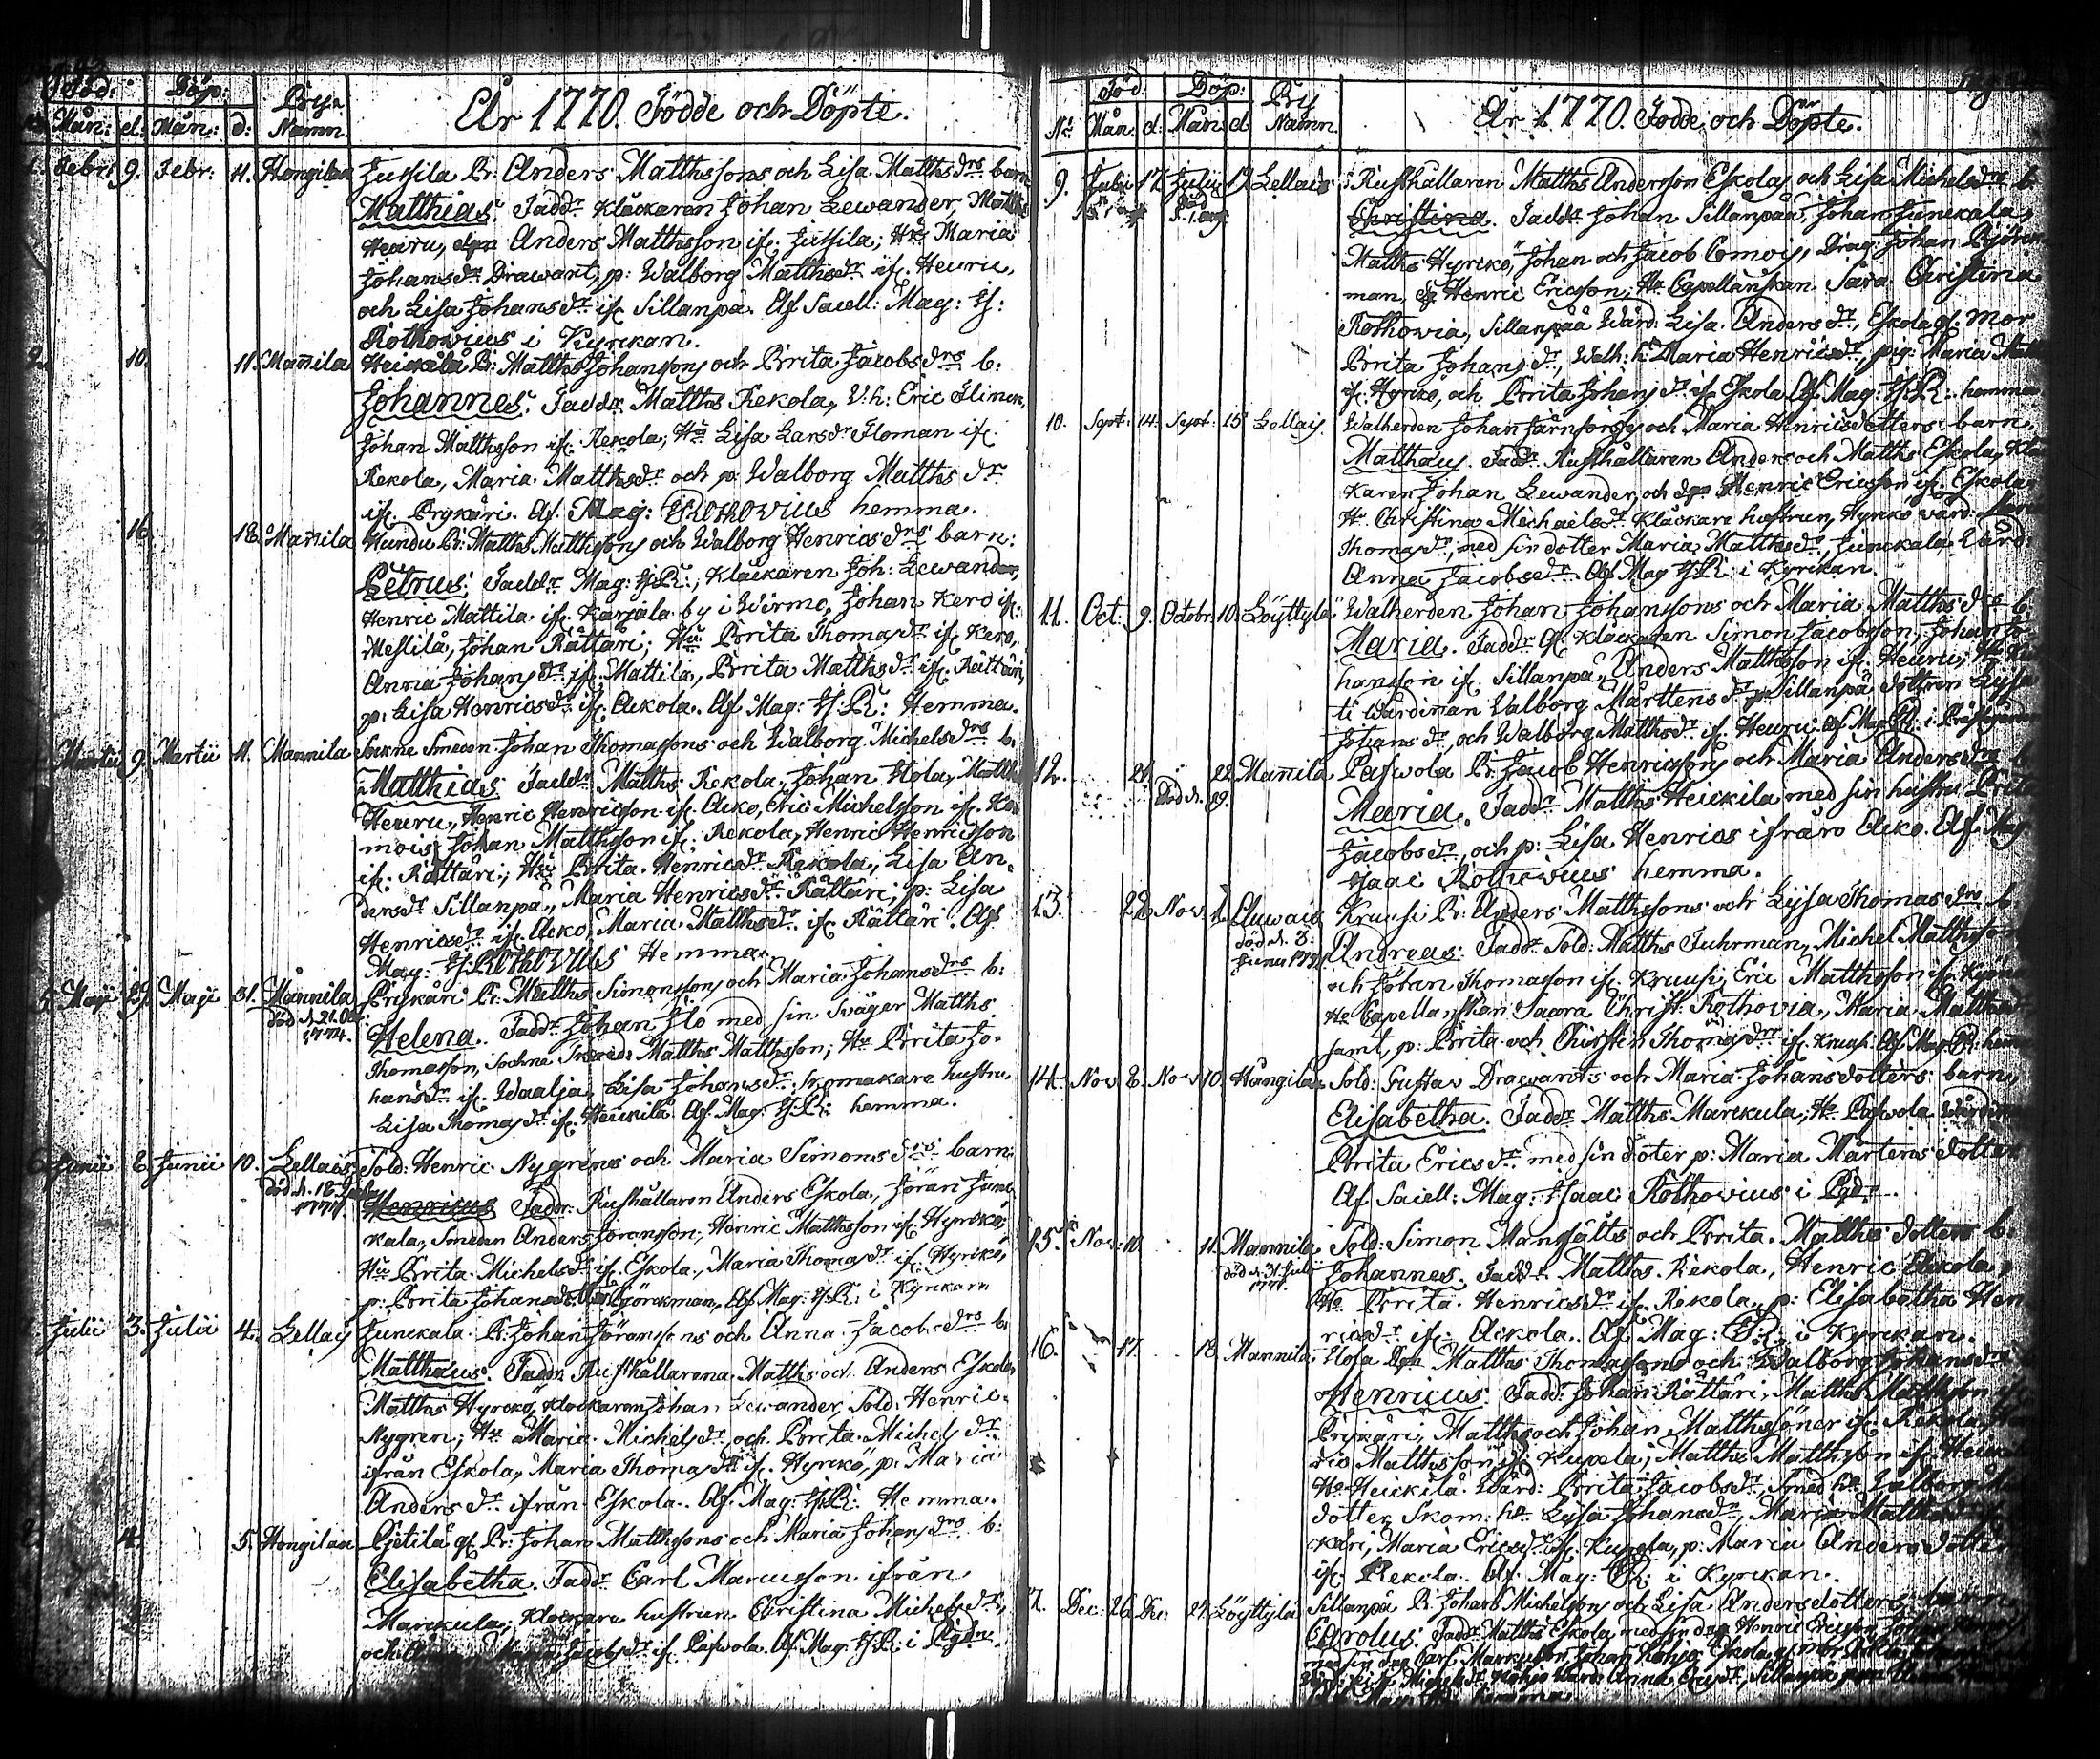 Föd: Döp: Byn
Mån: d: Mån: d: Namn.
År 1770. Födde och Döpte.
1. Febr: 9. Febr: 11. Hongilan Jutsila Br: Anders Matthssons och Lisa Matths drs barn
Matthias. Faddr Klåckaren Johan Lewander, Matths
Heuru, Anders Matthsson if. Jutsila; Hu Maria
Johansdr Drawant, p: Walborg Matthsdr if. Heuru,
och Lisa Johansdr if Sillanpä. Af Sacell: Mag: Is:
Rothovius i Kyrckan.
2. 10. 11. Mannila Heickilä Br: Matths Johanssons och Brita Jacobs drs b:
Johannes. Faddr Matths Rekola, V:h: Eric
Johan Matthsson if. Rekola; Hu Lisa Larsdr if
Rekola, Maria Matthsdr och p: Walborg Matths dr
if. Prykäri. Af Mag: Rothovius hemma.
16. 18. Mannila Hundu Br: Matths Matthssons och Walborg Henrics drs barn:
Petrus: Faddr Mag: Is:R:, Klåckaren Joh: Lewander,
Henric Mattila if. Karjala by i Wirmo, Johan Kero if.
Mestilä, Johan Rättäri; Hu Brita Thomasdr if. Kero,
Anna Johansdr if. Mattila, Brita Matthsdr if. Rättäri,
p: Lisa Henricsdr if. Ackola. Af Mag: Is:R: Hemma.
Martii 9. Martii 11. Mannila Sockne Smeden Johan Thomassons och Walborg Michels drs b:
Matthias Faddr Matths Rekola, Johan Hola, Matths
Heuru, Henric Henricsson if. Acko, Eric Michelsson if. Ko
mois, Johan Matthsson if: Rekola, Henric Henricsson
if. Rättäri; Hu Brita Henricsdr Rekola, Lisa An
dersdr Sillanpä, Maria Henricsdr Rättäri; p: Lisa
Henricsdr if. Acko, Maria Matthsdr if. Rättäri. Af
Mag: Is: Rothovius Hemma.
5. Maji 29. Maji 31. Mannila Prykäri Br: Matths Simonssons och Maria Johans drs b:
död d. 21. Oct
1774.
Helena. Faddr Johan Ilo med sin Swåger Matths
Thomasson, Sochne Matths Matthsson; Hu Brita Jo
hansdr if. Waalja, Lisa Johansdr Skomakare hustru
Lisa Thomasdr if. Heickilä. Af Mag: Is:R: hemma.
6. Junii 8. Junii 10. Lellais Sold: Henric Nygrens och Maria Simons drs barn:
död d. 18
1771.
Henricus Faddr: Rusthållaren Anders Eskola, Jöran Junc
kala, Smeden Anders Jöransson, Henric Matthsson if. Hyrckö;
Hu Brita Michelsdr if. Eskola, Maria Thomasdr if. Hyrckö,
p: Brita Johansdr Björckman, Af Mag: Is:R: i Kyrckan
Julii 3. Julii 4. Lellais Junckala Br: Johan Jöranssons och Anna Jacobs drs b:
Matthæus. Faddr Rusthållarena Matths och Anders Eskola,
Matths Hyrckö, Klåckaren Johan Lewander, Sold: Henric
Nygren; Hu Maria Michelsdr och Brita Michelsdr
ifrån Eskola, Maria Thomasdr if. Hyrckö, p: Maria
Anders dr ifrån Eskola. Af Mag: Is:R: Hemma.
4. 5. Hongilan Pjetilä gf Br: Johan Matthssons och Maria Johans drs b:
Elisabetha. Faddr Carl Marcusson ifrån
Marckula; Klåckare hustrun Christina Michelsdr,
och Jacobsdr if Pafwola. Af Mag: Is:R: i Pgdn.
Föd Döp: By
No Mån. d. Mån d Namn.
År 1770. Födde och Döpte.
9. Julii 17. Julii 19. Lellais Rusthållaren Matths Andersson Eskolas och Lisa Michelsdrs b
Död
d. 1. aug.
Christina. Faddr Johan Sillanpää, Johan Junckala,
Matths Hyrckö, Johan och Jacob Comois, Drag: Johan Björck
man, Henric Ericsson, Hu Capellanskan Sara Christina
Rothovia, Sillanpää Wärd: Lisa Andersdr, Eskola gl: Mor
Brita Johansdr, Walh: h: Maria Henricsdr, pig: Maria
if. Hyrckö, och Brita Johansdr if. Eskola Af Mag: Is:R: hemma
10. Sept: 14. Sept: 15 Lellais Walherden Johan Järnforss och Maria Hinricsdotters barn,
Matthæus. Faddr Rusthållaren Anders och Matths Eskola, Klå
karen Johan Lewander, och Henric Ericsson if. Eskola
Hu Christina Michaelsdr Klåckare hustrun, Hyrckö wärd:
Thomasdr, med sin dotter Maria Matthsdr, Junckala Wärd:
Anna Jacobsdr. Af Mag Is:R: i Kyrckan.
11. Oct: 9. Octobr 10. Löyttylä Walherden Johan Johanssons och Maria Matths drs b.
Maria. Faddr gl. Klåckaren Simon Jacobsson, Johan Jo
hansson if. Sillanpä, Anders Matthsson if. Heuru;
ti Wärdinan Valborg Mårtensdr, p: Sillanpä dottren Lysa
Johansdr, och Walborg Matthsdr if. Heuru. Af Mag: i Prästgården
12. 21. 22. Mannila Pafwola Br: Jacob Henricssons och Maria Andersdrs b
Död d. 29.
Maria. Faddr Matths Heickilä med sin hustru Brita
Jacobsdr, och p: Lisa Henrics ifrån Acko. Af Mag
Isaac Rothovius hemma.
13. 28 Nov. 1. Auwais Krausi Br: Anders Matthssons och Lysa Thomas drs b
död d. 8.
Junii 177
Andreas: Faddr Sold: Matths Fuhrman, Michel Matthsson
och Johan Thomasson if. Krausi, Eric Matthsson if.
Hu Capellanskan Saara Christ: Rothovia, Maria Matthsdr
samt, p: Brita och Chirstin Thomædrr if. Krausi. Af Mag hem
14. Nov 8. Nov 10. Hångilan Sold: Gustav Drawants och Maria Johansdotters barn,
Elisabetha. Faddr Matths Marckula; Hu Pafwola Wärdin
Brita Ericsdr med sin doter p: Maria Mårtens dotter
Af Sacell: Mag: Isaac Rothovius i Pgdn.
15. Nov. 10. 11. Mannila Sold: Simon Mansfälts och Brita Matths dotters b.
död d. 31. Julii
1771.
Johannes. Faddr Matths Rekola, Henric Ackola,
Hu Brita Henricsdr if. Rekola, p: Elisabetha Hen
ricsdr if. Ackola. Af Mag: i Kyrckan.
16. 17. 18 Mannila, Hola Matths Thomassons och Walborg Johansdrs
Henricus. Faddr Johan Rättäri, Matths Matthsson if
Prykäri, Matths och Johan Matthssöner if. Rekola,
ric Matthsson if Kupola, Matths Matthsson if. Heick
Hu Heickilä Wärd: Brita Jacobsdr, Smed hu Valborg
dotter, Skom: hu Lysa Johansdr, Maria Matths
käri, Maria Ericsdr if. Kupola, p: Maria Anders dotter
if Rekola. Af Mag: i Kyrckan.
17. Dec: 26 Dec: 27. Löyttylä Sillanpä Br: Johan Michelssons och Lisa Andersdotters barn
Carolus. Faddr Matths Eskola med sin Henric Ericsson, Johan
Carl Marckusson, Johan